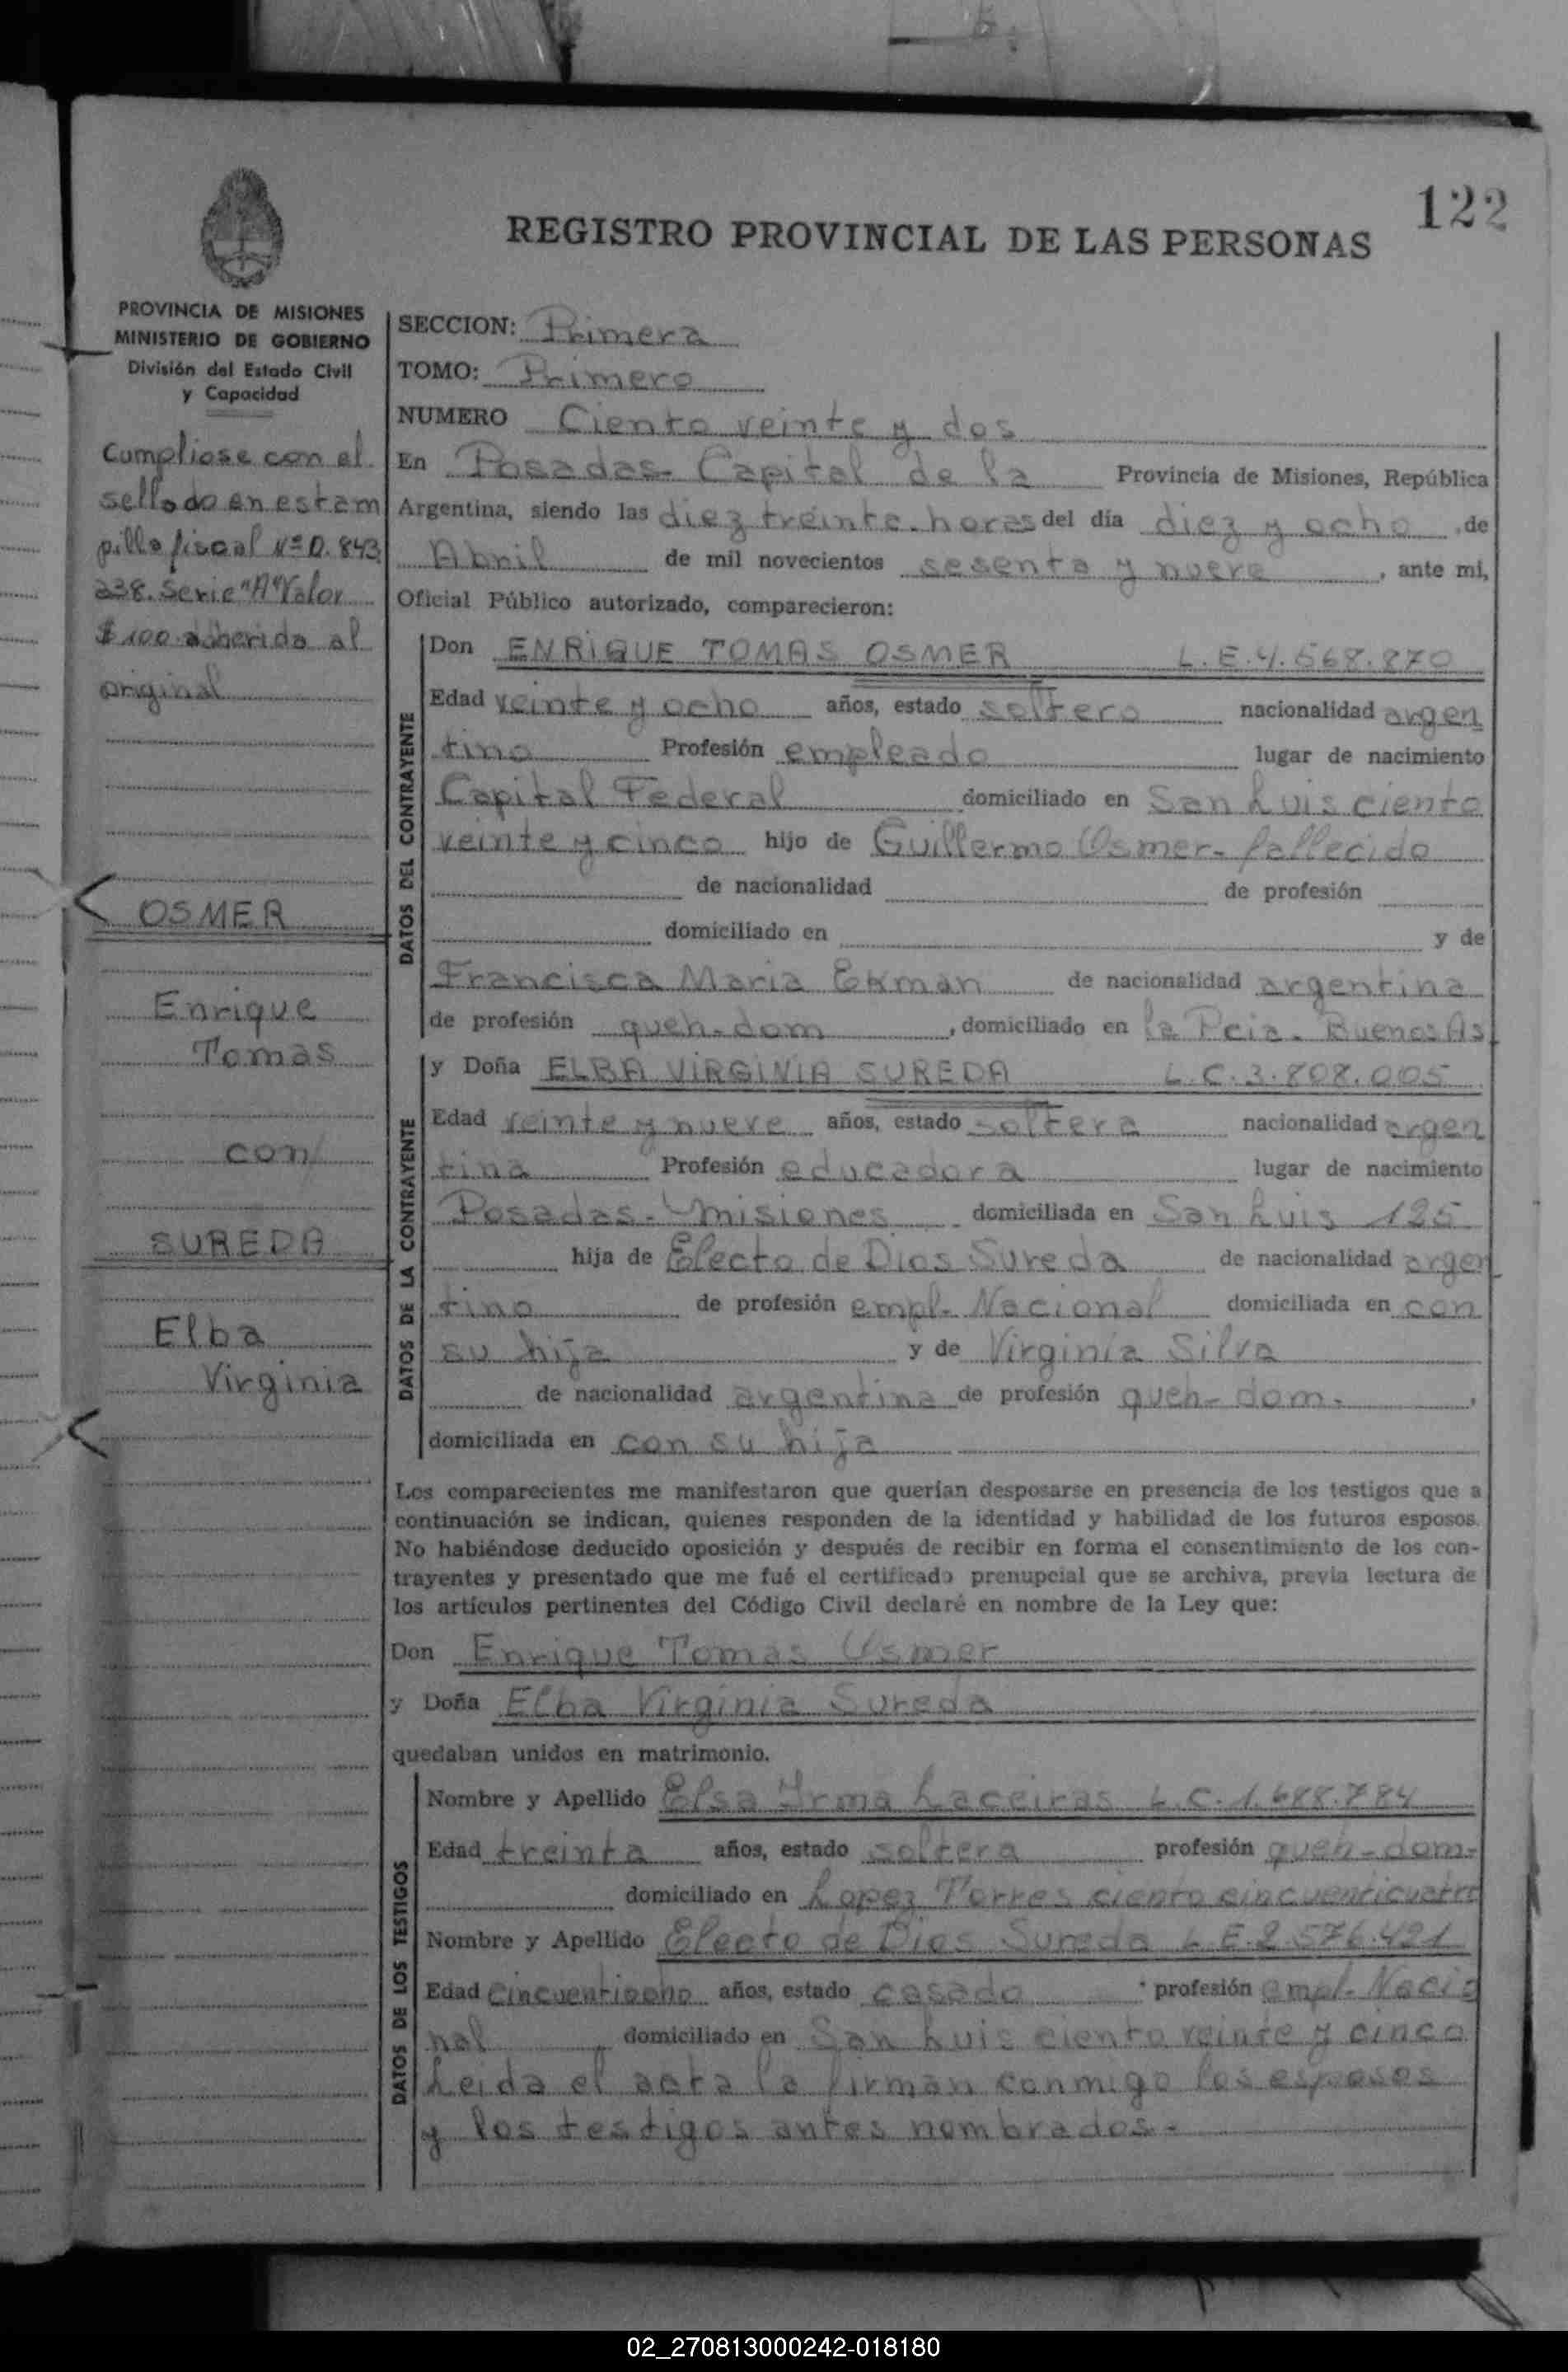 122
REGISTRO PROVINCIAL DE LAS PERSONAS
PROVINCIA DE MISIONES
MINISTERIO DE GOBIERNO
División del Estado Civil
y Capacidad
Cumpliose con el
sellado en estam
pilla fiscal Nº 0.843
238. Serie "A" Valor
$ 100 adherida al
original
OSMER
Enrique
Tomas
con
SUREDA
Elba
Virginia
SECCION: Primera
TOMO: Primero
NUMERO Ciento veinte y dos
En Posadas- Capital de la Provincia de Misiones, República
Argentina, siendo las diez treinta horas del día diez y ocho de
Abril de mil novecientos sesenta y nueve, ante mi,
Oficial Público autorizado, comparecieron:
DATOS DEL CONTRAYENTE
Don ENRIQUE TOMAS OSMER L.E.4.568.870
Edad veinte y ocho años, estado soltero nacionalidad argen
tino Profesión empleado lugar de nacimiento
Capital Federal domiciliado en San Luis ciento
veinte y cinco hijo de Guillermo Osmer- fallecido
de nacionalidad de profesión
domiciliado en y de
Francisca Maria Ekman de nacionalidad argentina
de profesión queh-dom, domiciliado en la Pcia. Buenos As
DATOS DE LA CONTRAYENTE
y Doña ELBA VIRGINIA SUREDA L.C.3.808.005
Edad veinte y nueve años, estado soltera nacionalidad argen
tina Profesión educadora lugar de nacimiento
Posadas- Misiones domiciliada en San Luis 125
hija de Electo de Dios Sureda de nacionalidad argen
tino de profesión empl- Nacional domiciliada en con
su hija y de Virginia Silva
de nacionalidad argentina de profesión queh-dom.,
domiciliada en con su hija
Los comparecientes me manifestaron que querían desposarse en presencia de los testigos que a
continuación se indican, quienes responden de la identidad y habilidad de los futuros esposos.
No habiéndose deducido oposición y después de recibir en forma el consentimiento de los con-
trayentes y presentado que me fué el certificado prenupcial que se archiva, previa lectura de
los artículos pertinentes del Código Civil declaré en nombre de la Ley que:
Don Enrique Tomas Osmer
y Doña Elba Virginia Sureda
quedaban unidos en matrimonio.
DATOS DE LOS TESTIGOS
Nombre y Apellido Elsa Yrma Laceiras L.C.1.688.784
Edad treinta años, estado soltera profesión queh-dom-
domiciliado en Lopez Torres ciento cincuenticuatro
Nombre y Apellido Electo de Dios Sureda L.E.2.576.421
Edad cincuentiocho años, estado casado profesión empl- Nacio
nal domiciliado en San Luis ciento veinte y cinco
Leida el acta la firman conmigo los esposos
y los testigos antes nombrados-
02_270813000242-018180